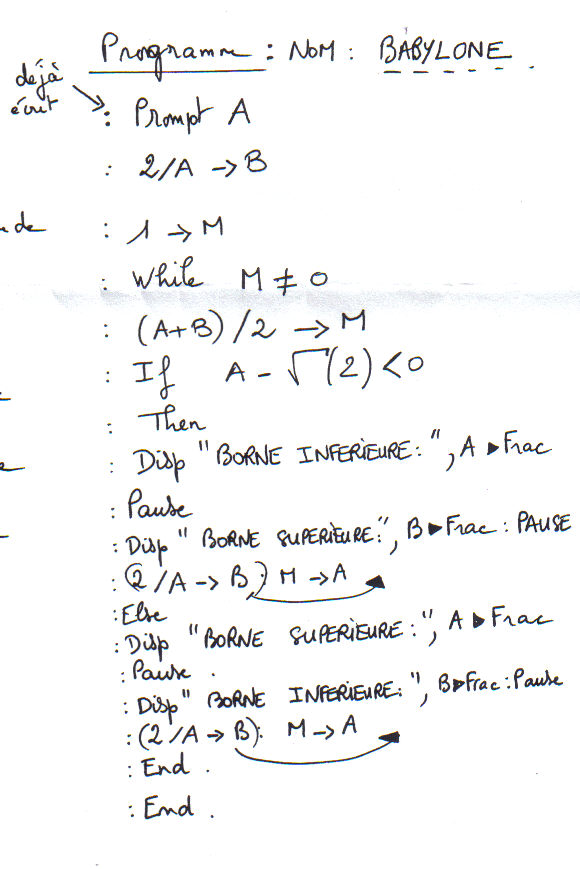 Programme : NOM : BABYLONE
déjà
écrit
: Prompt A
: 2/A → B
de
: 1 → M
: While M ≠ 0
: (A+B)/2 → M
: If A - √(2) < 0
: Then
: Disp "BORNE INFERIEURE:", A ▶ Frac
: Pause
: Disp "BORNE SUPERIEURE:", B ▶ Frac : PAUSE
: (2/A → B) M → A
: Else
: Disp "BORNE SUPERIEURE:", A ▶ Frac
: Pause .
: Disp "BORNE INFERIEURE:", B ▶ Frac : Pause
: (2/A → B). M → A
: End .
: End .